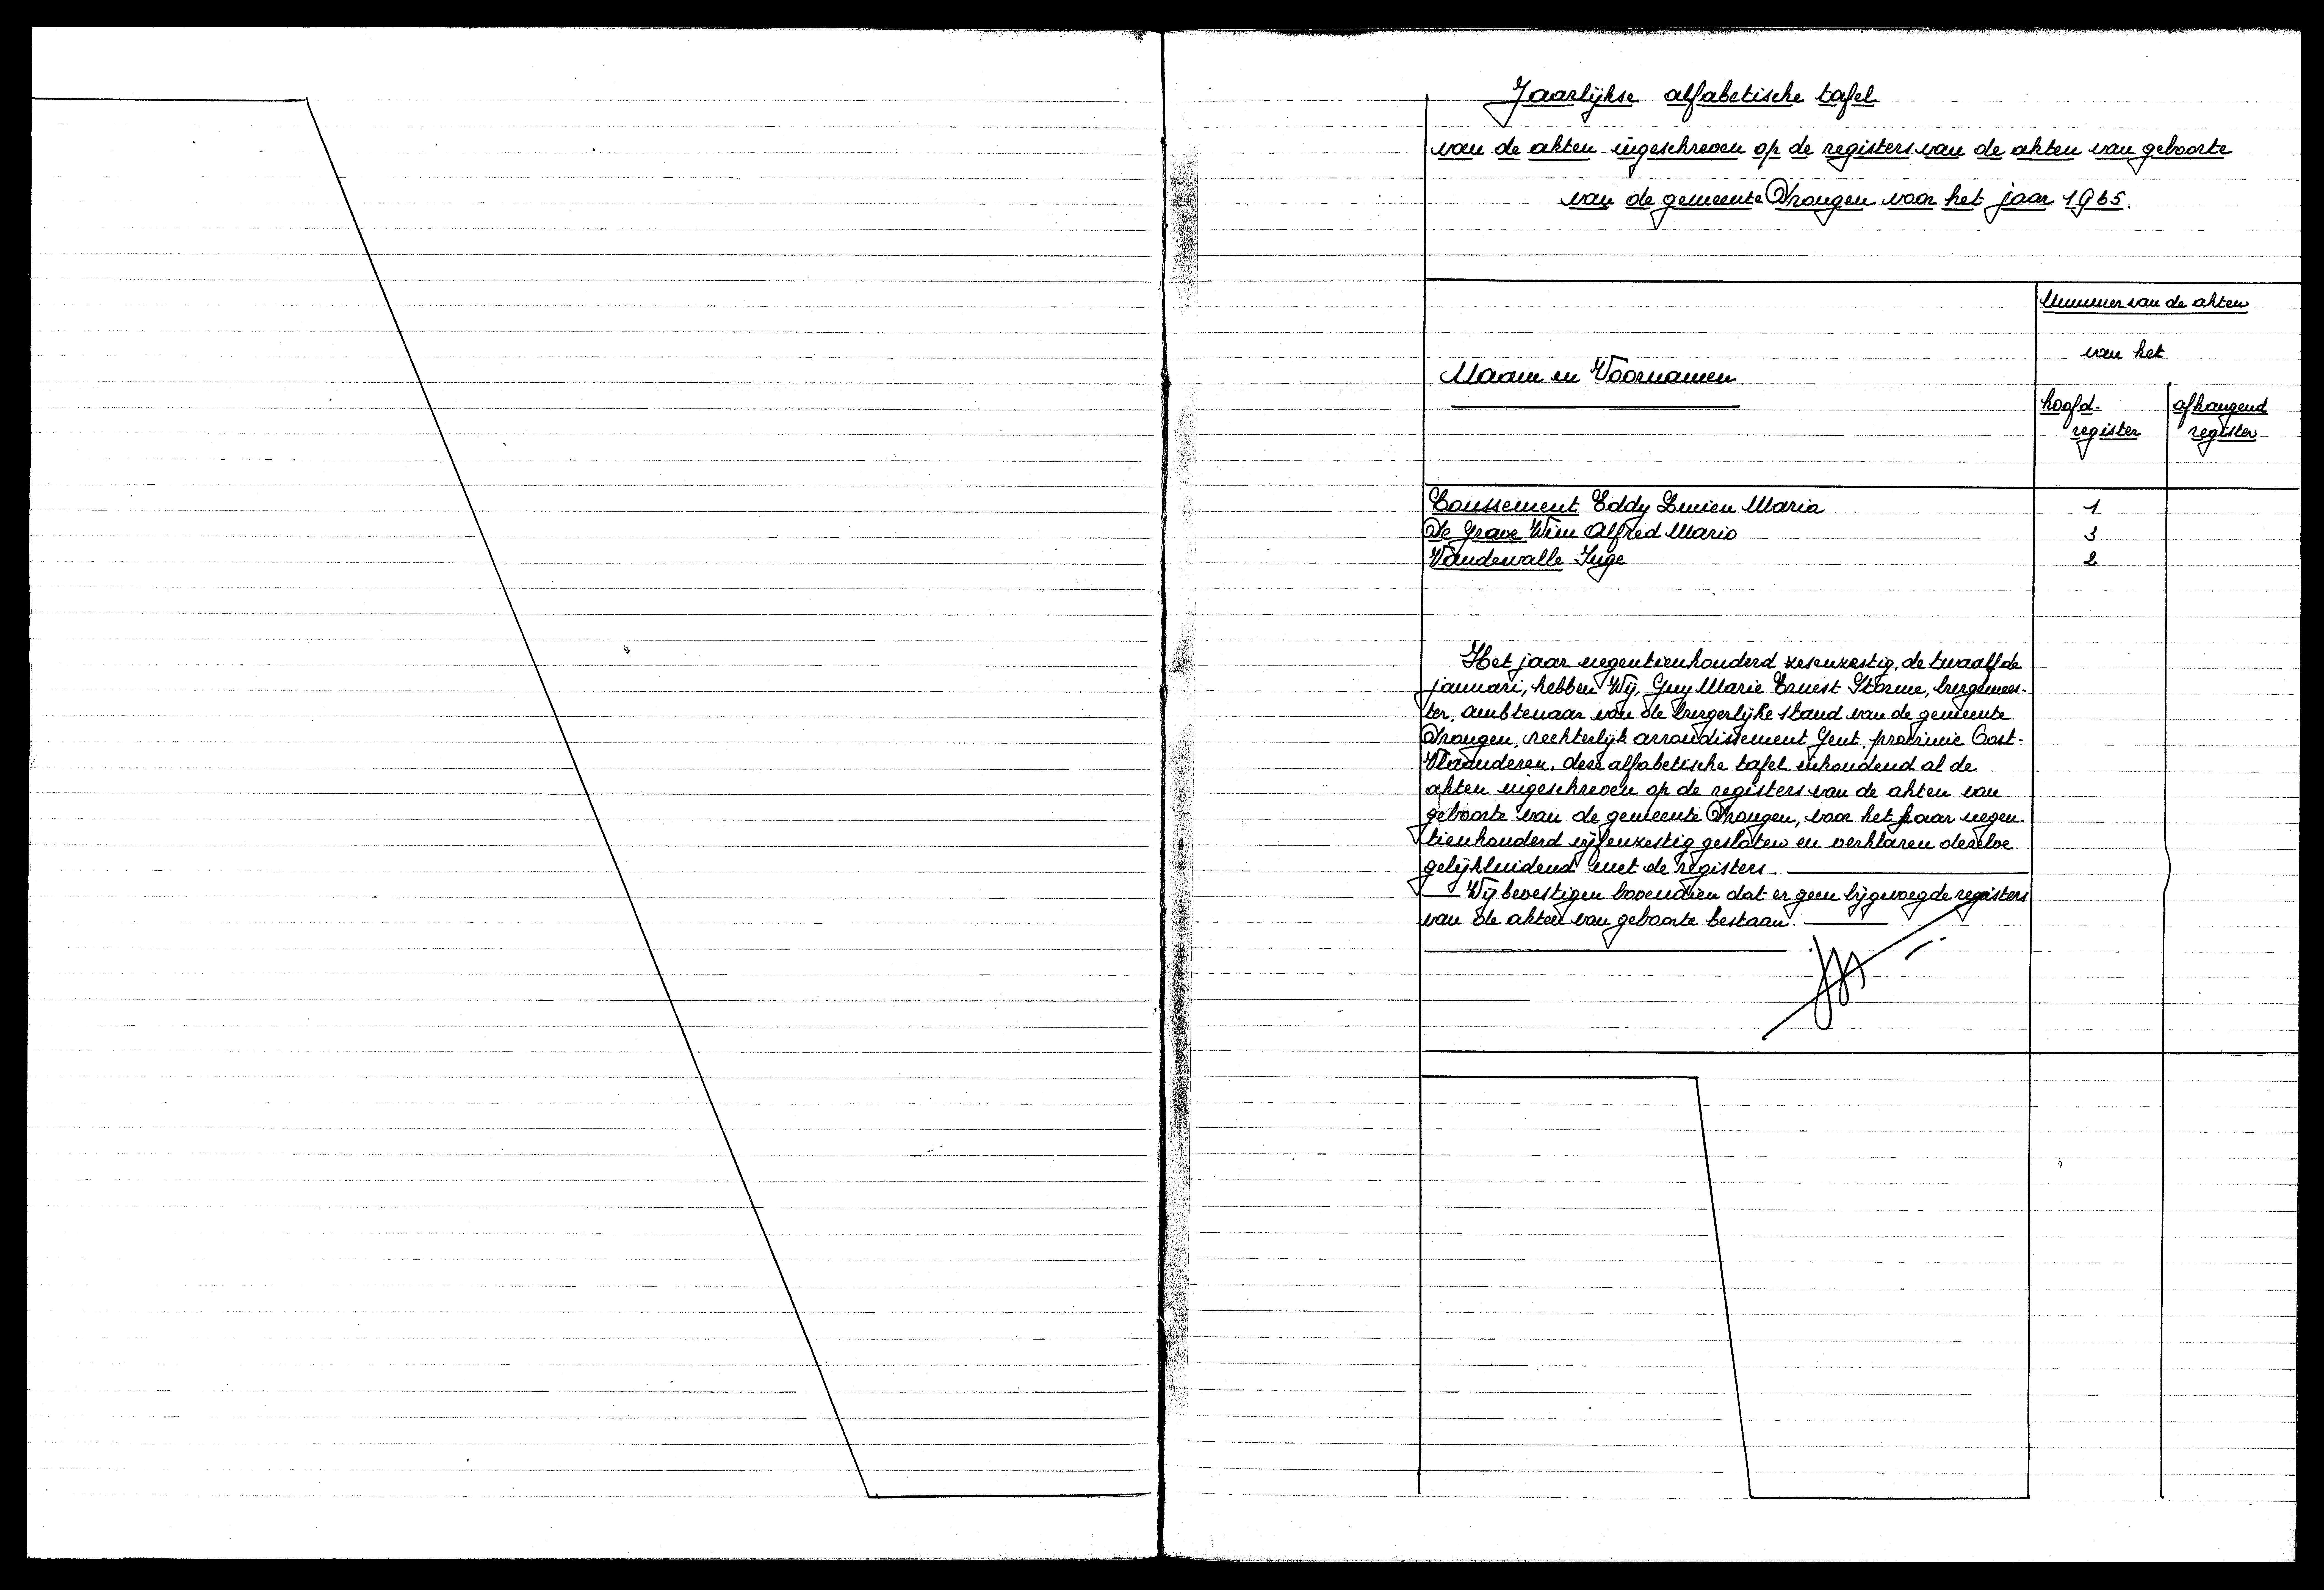 Jaarlijkse alfabetische tafel
van de akten ingeschreven op de registers van de akten van geboorte
van de gemeente Drongen voor het jaar 1965.
Nummer van de akten
van het
Naam en Voornamen
hoofd- afhangend
register register
Coussement Eddy Lucien Maria 1
De Grave Wim Alfred Mario 3
Vandewalle Inge 2
Het jaar negentienhonderd zesenzestig, de twaalfde
januari, hebben Wij, Guy Marie Ernest Storme, burgemees-
ter, ambtenaar van de burgerlijke stand van de gemeente
Drongen, rechterlijk arrondissement Gent, provincie Oost-
Vlaanderen, deze alfabetische tafel, inhoudend al de
akten ingeschreven op de registers van de akten van
geboorte van de gemeente Drongen, voor het jaar negen-
tienhonderd vijfenzestig gesloten en verklaren dezelve
gelijkluidend met de registers.
Wij bevestigen bovendien dat er geen bijgevoegde registers
van de akten van geboorte bestaan.